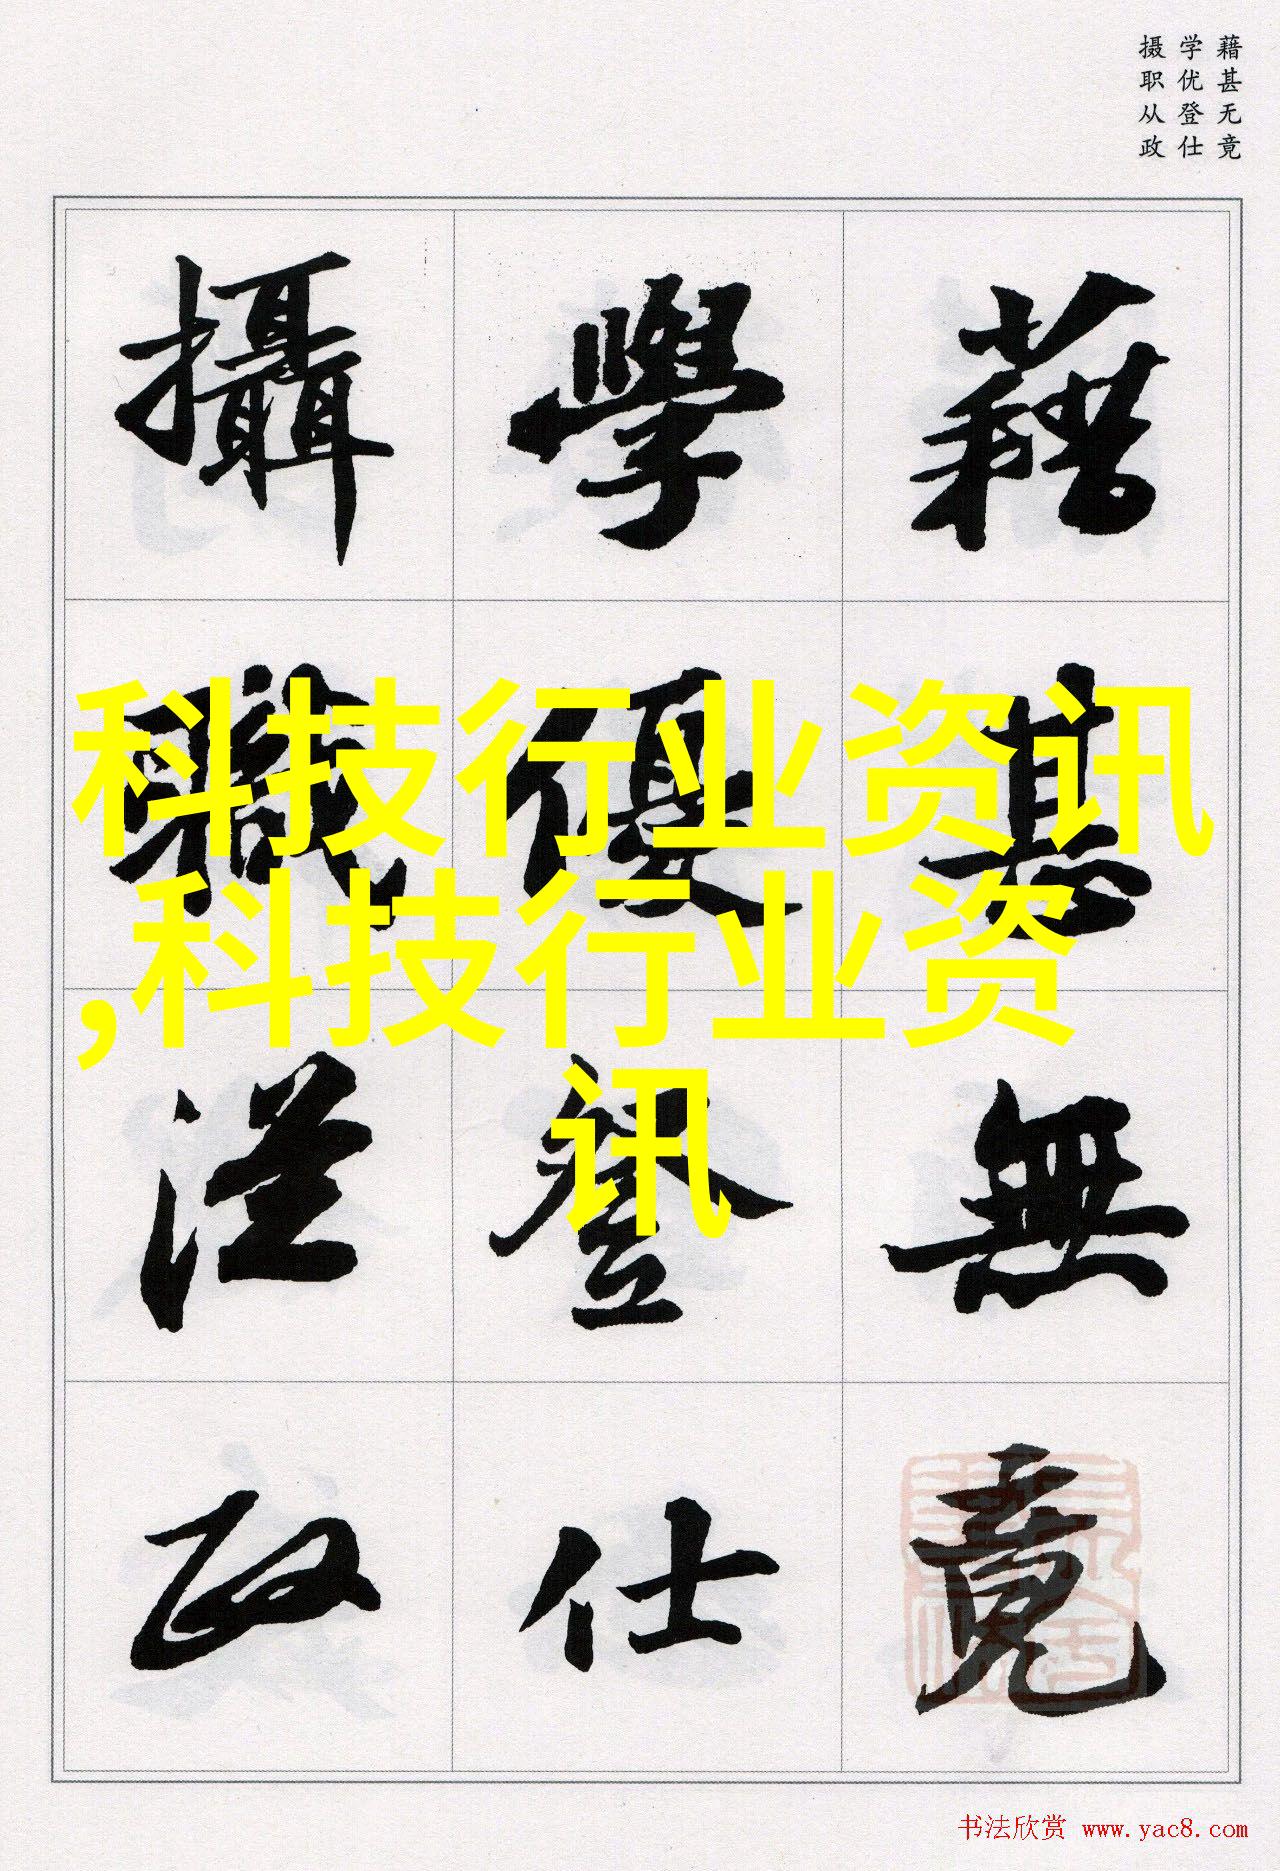 藉甚无竟
学优登仕
摄职从政
藉甚無竟
學優登仕
攝職從政
科技行业资讯
,科技行业资
讯
书法欣赏 www.yac8.com